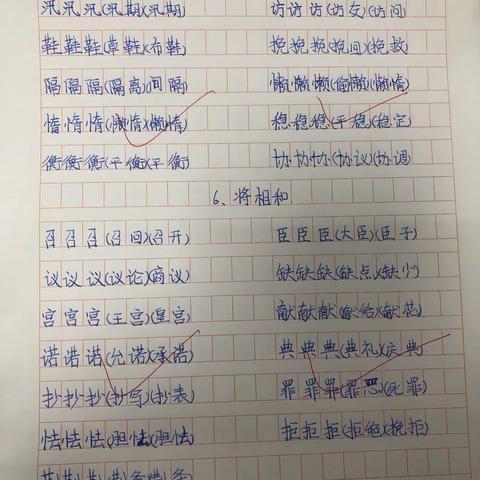 汛汛汛(汛期)(汛期) 访访访(访友)(访问)
鞋鞋鞋(草鞋)(布鞋) 挽挽挽(挽回)(挽救)
隔隔隔(隔离)(间隔) 懒懒懒(偷懒)(懒惰)
惰惰惰(懒惰)(懒惰) 稳稳稳(平稳)(稳定)
衡衡衡(平衡)(平衡) 协协协(协议)(协调)
6、将相和
召召召(召回)(召开) 臣臣臣(大臣)(臣子)
议议议(议论)(商议) 缺缺缺(缺点)(缺少)
宫宫宫(王宫)(皇宫) 献献献(献给)(献花)
诺诺诺(允诺)(承诺) 典典典(典礼)(庆典)
抄抄抄(抄写)(抄表) 罪罪罪(罪恶)(死罪)
怯怯怯(胆怯)(胆怯) 拒拒拒(拒绝)(挽拒)